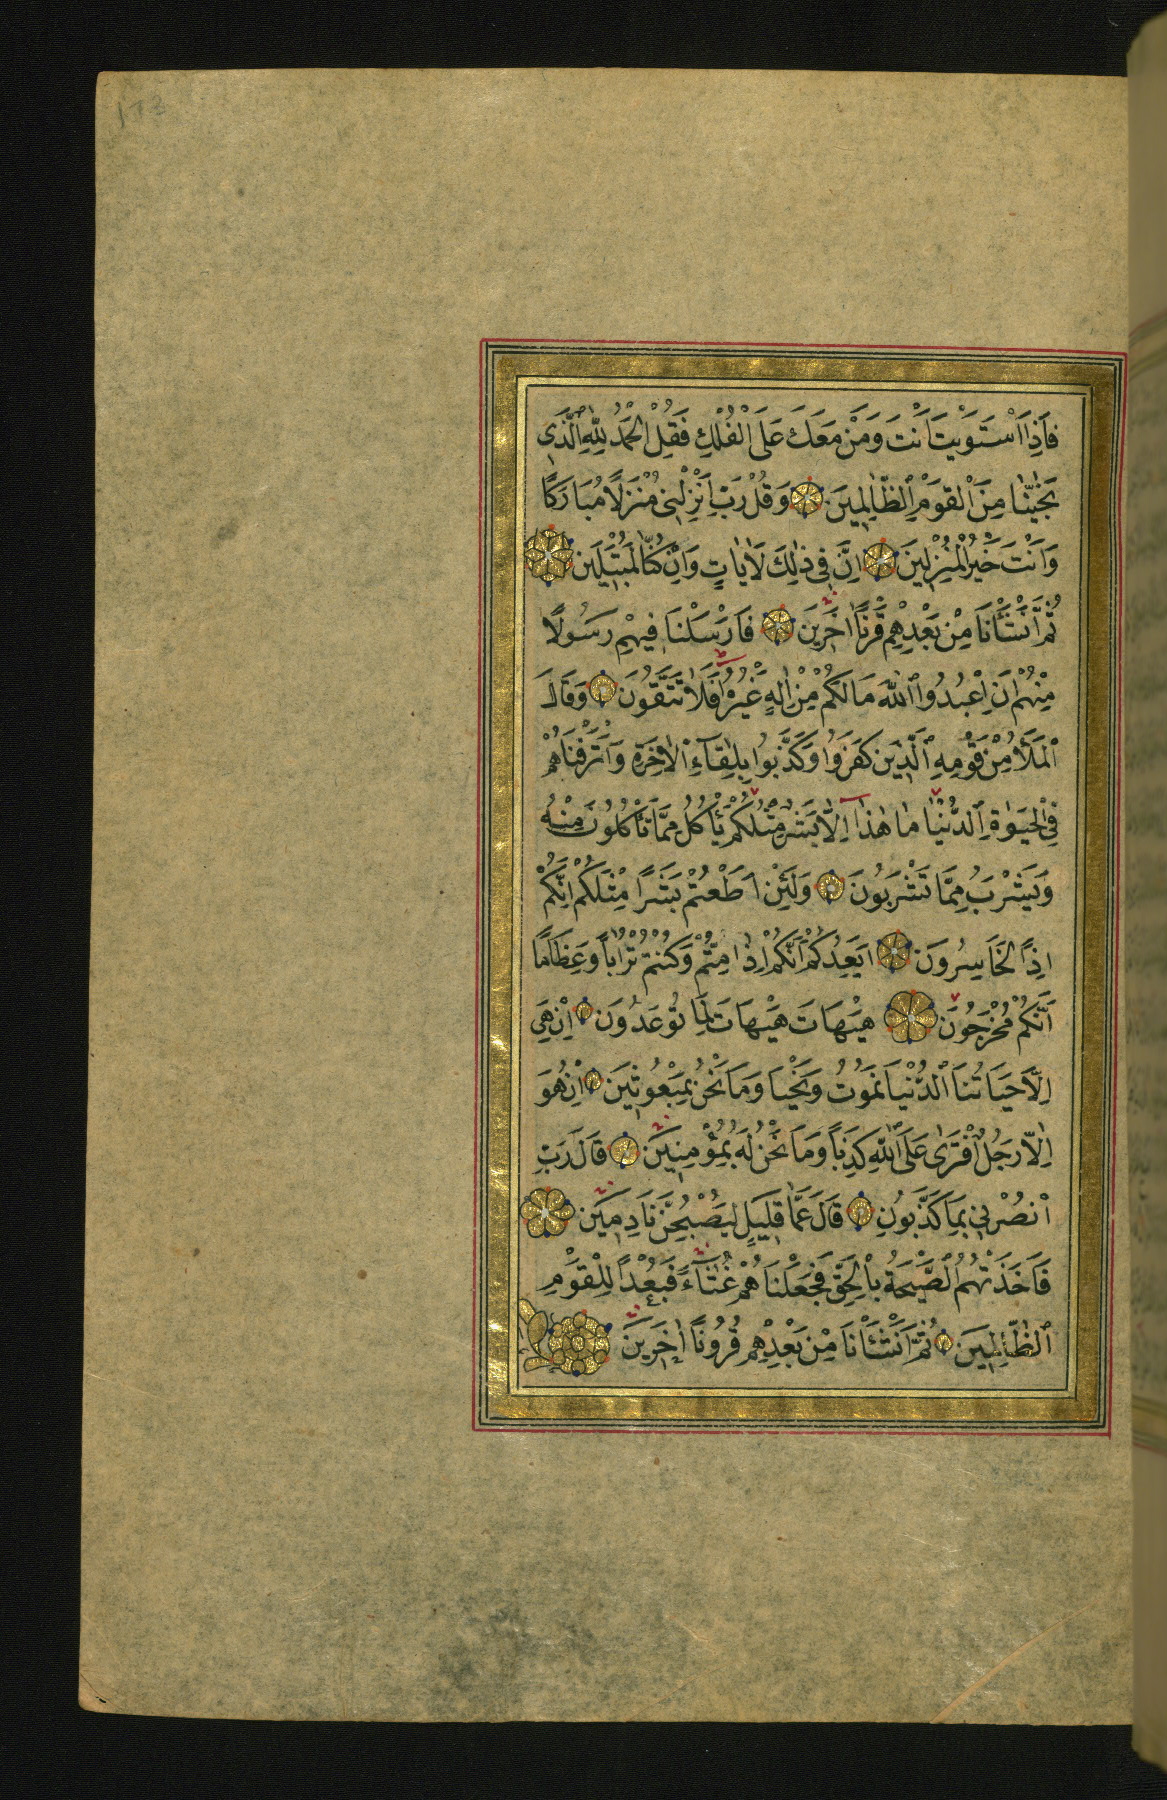 173
فَاِذَا اسْتَوَيْتَ اَنْتَ وَمَنْ مَعَكَ عَلَى الْفُلْكِ فَقُلِ الْحَمْدُ لِلّٰهِ الَّذٖى
نَجّٰينَا مِنَ الْقَوْمِ الظَّالِمٖينَ وَقُلْ رَبِّ اَنْزِلْنٖى مُنْزَلًا مُبَارَكًا
وَاَنْتَ خَيْرُ الْمُنْزِلٖينَ اِنَّ فٖى ذٰلِكَ لَاٰيَاتٍ وَاِنْ كُنَّا لَمُبْتَلٖينَ
ثُمَّ اَنْشَأْنَا مِنْ بَعْدِهِمْ قَرْنًا اٰخَرٖينَ فَاَرْسَلْنَا فٖيهِمْ رَسُولًا
مِنْهُمْ اَنِ اعْبُدُوا اللّٰهَ مَا لَكُمْ مِنْ اِلٰهٍ غَيْرُهُ اَفَلَا تَتَّقُونَ وَقَالَ
الْمَلَأُ مِنْ قَوْمِهِ الَّذٖينَ كَفَرُوا وَكَذَّبُوا بِلِقَاۤءِ الْاٰخِرَةِ وَاَتْرَفْنَاهُمْ
فِى الْحَيٰوةِ الدُّنْيَا مَا هٰذَا اِلَّا بَشَرٌ مِثْلُكُمْ يَأْكُلُ مِمَّا تَأْكُلُونَ مِنْهُ
وَيَشْرَبُ مِمَّا تَشْرَبُونَ وَلَئِنْ اَطَعْتُمْ بَشَرًا مِثْلَكُمْ اِنَّكُمْ
اِذًا لَخَاسِرُونَ اَيَعِدُكُمْ اَنَّكُمْ اِذَا مِتُّمْ وَكُنْتُمْ تُرَابًا وَعِظَامًا
اَنَّكُمْ مُخْرَجُونَ هَيْهَاتَ هَيْهَاتَ لِمَا تُوعَدُونَ اِنْ هِىَ
اِلَّا حَيَاتُنَا الدُّنْيَا نَمُوتُ وَنَحْيَا وَمَا نَحْنُ بِمَبْعُوثٖينَ اِنْ هُوَ
اِلَّا رَجُلٌ افْتَرٰى عَلَى اللّٰهِ كَذِبًا وَمَا نَحْنُ لَهُ بِمُؤْمِنٖينَ قَالَ رَبِّ
انْصُرْنٖى بِمَا كَذَّبُونِ قَالَ عَمَّا قَلٖيلٍ لَيُصْبِحُنَّ نَادِمٖينَ
فَاَخَذَتْهُمُ الصَّيْحَةُ بِالْحَقِّ فَجَعَلْنَاهُمْ غُثَاۤءً فَبُعْدًا لِلْقَوْمِ
الظَّالِمٖينَ ثُمَّ اَنْشَأْنَا مِنْ بَعْدِهِمْ قُرُونًا اٰخَرٖينَ